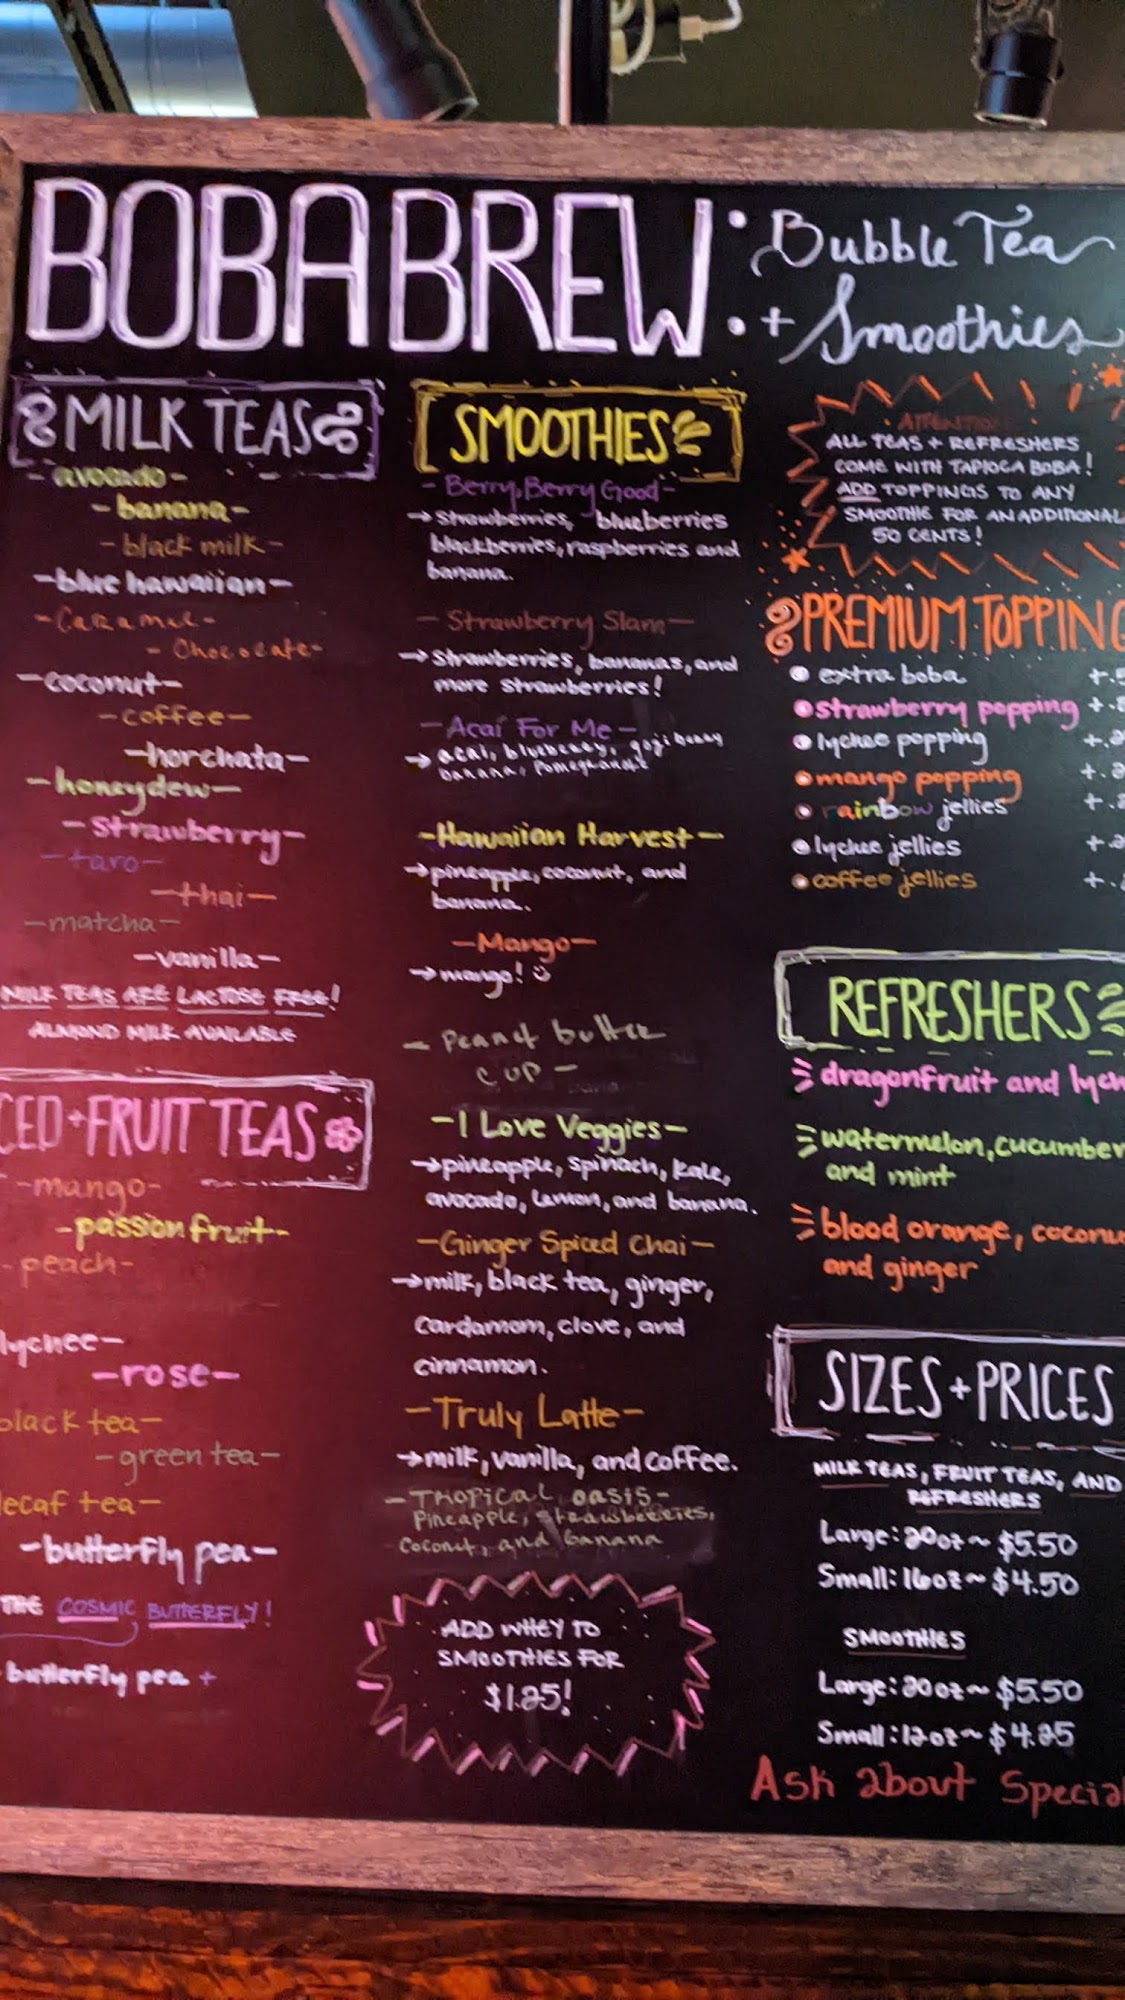 BOBA BREW: Bubble Tea
+ Smoothies
MILK TEAS
- avocado -
- banana -
- black milk -
- blue hawaiian -
- Caramel -
- Chocolate -
- coconut -
- coffee -
- horchata -
- honeydew -
- strawberry -
- taro -
- thai -
- matcha -
- vanilla -
MILK TEAS ARE LACTOSE FREE!
ALMOND MILK AVAILABLE
CED + FRUIT TEAS
- mango -
- passion fruit -
- peach -
lychee -
- rose -
black tea -
- green tea -
decaf tea -
- butterfly pea -
THE COSMIC BUTTERFLY!
butterfly pea +
SMOOTHIES
- Berry, Berry Good -
→ strawberries, blueberries
blackberries, raspberries and
banana.
- Strawberry Slam -
→ strawberries, bananas, and
more strawberries!
- Acaí For Me -
→ acai, blueberry, goji berry
banana, pomegranate
- Hawaiian Harvest -
→ pineapple, coconut, and
banana.
- Mango -
→ mango! ☺
- Peanut butter
cup -
- I Love Veggies -
→ pineapple, spinach, kale,
avocado, lemon, and banana.
- Ginger Spiced Chai -
→ milk, black tea, ginger,
cardamom, clove, and
cinnamon.
- Truly Latte -
→ milk, vanilla, and coffee.
- Tropical oasis -
Pineapple, strawberries,
Coconut, and banana
ADD WHEY TO
SMOOTHIES FOR
$1.25!
ATTENTION
ALL TEAS + REFRESHERS
COME WITH TAPIOCA BOBA!
ADD TOPPINGS TO ANY
SMOOTHIE FOR AN ADDITIONAL
50 CENTS!
PREMIUM TOPPING
extra boba +.5
strawberry popping +.
lychee popping +.
mango popping +.
rainbow jellies +.
lychee jellies +.
coffee jellies +.
REFRESHERS
dragonfruit and lych
watermelon, cucumber
and mint
blood orange, coconu
and ginger
SIZES + PRICES
MILK TEAS, FRUIT TEAS, AND
REFRESHERS
Large: 20oz ~ $5.50
Small: 16oz ~ $4.50
SMOOTHIES
Large: 20oz ~ $5.50
Small: 12oz ~ $4.25
Ask about Specia